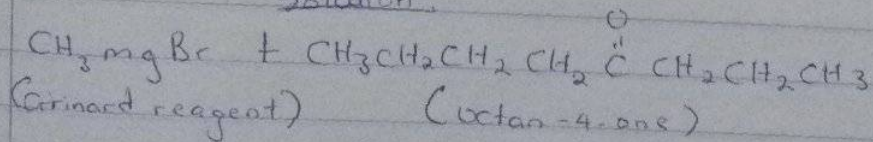 Solution.
O
CH₃mgBr + CH₃CH₂CH₂CH₂C̈CH₂CH₂CH₃
(Grinard reagent) (octan-4-one)